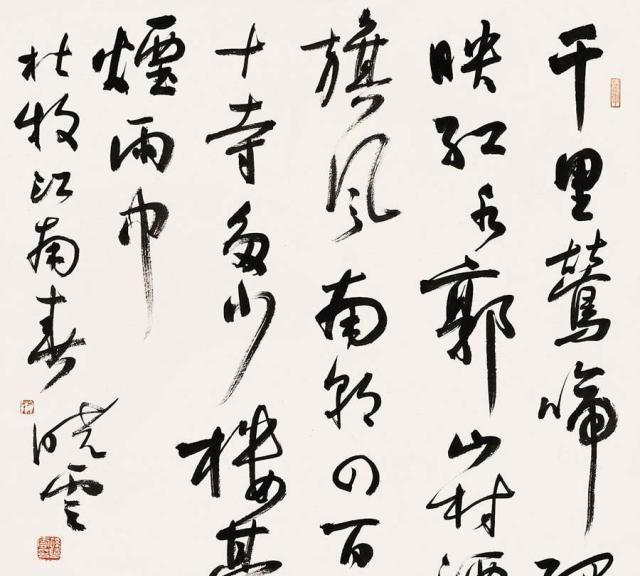 千里鶯啼
映紅水郭山村酒
旗風南朝四百
十寺多少樓臺
煙雨中
杜牧江南春
曉雲